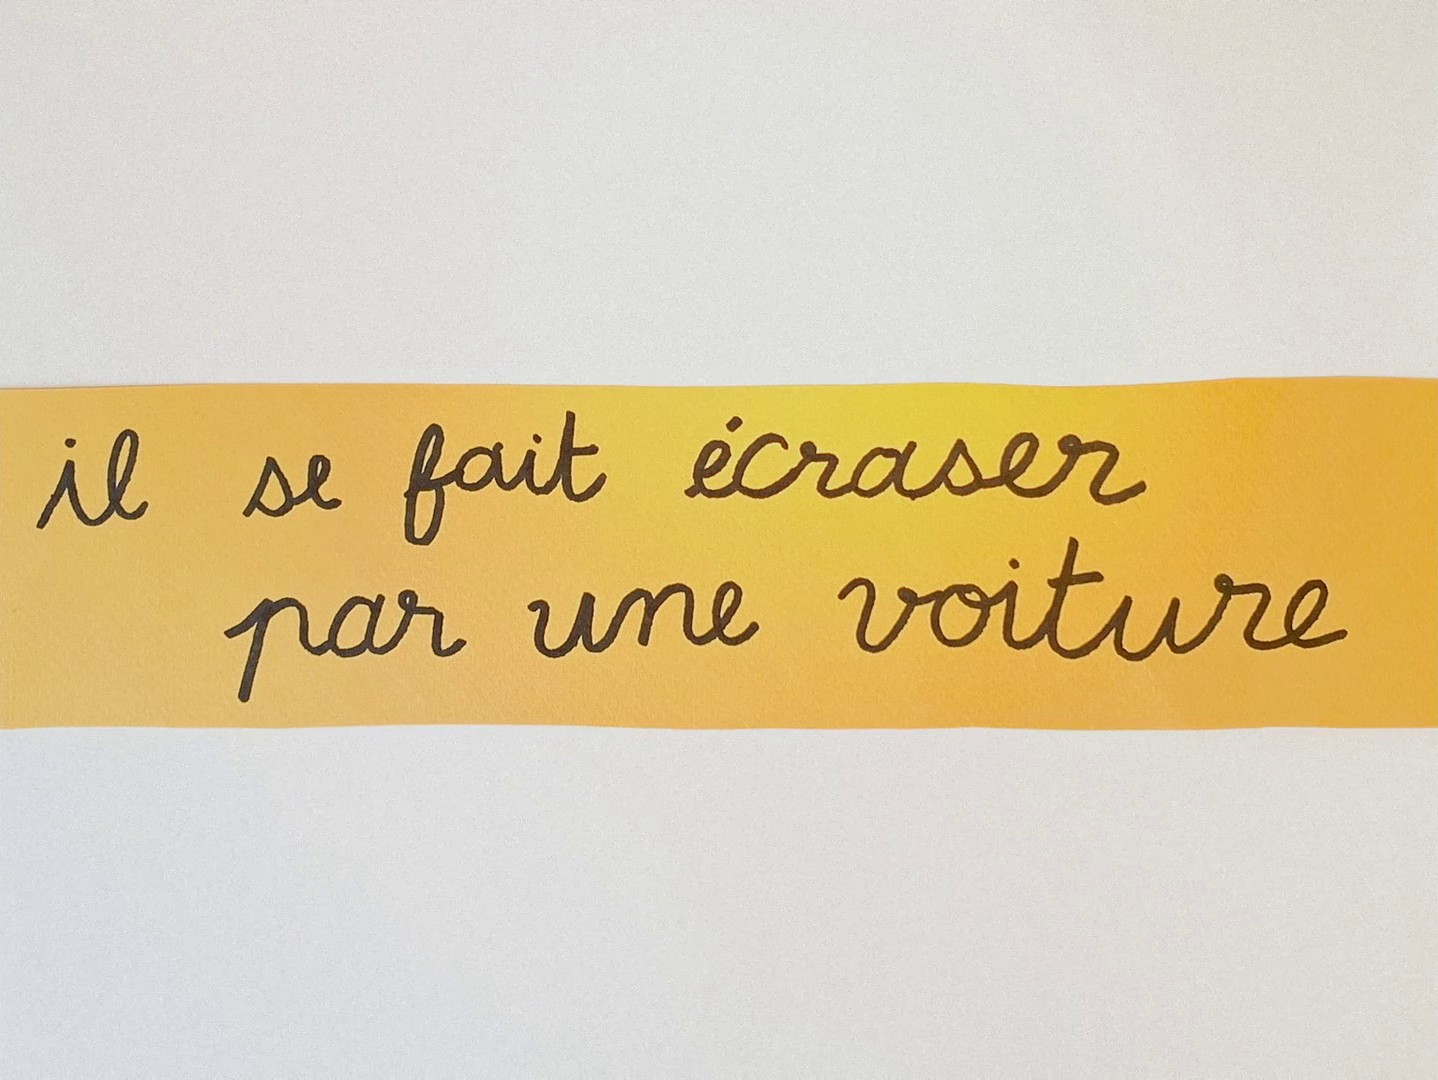 il se fait écraser
par une voiture